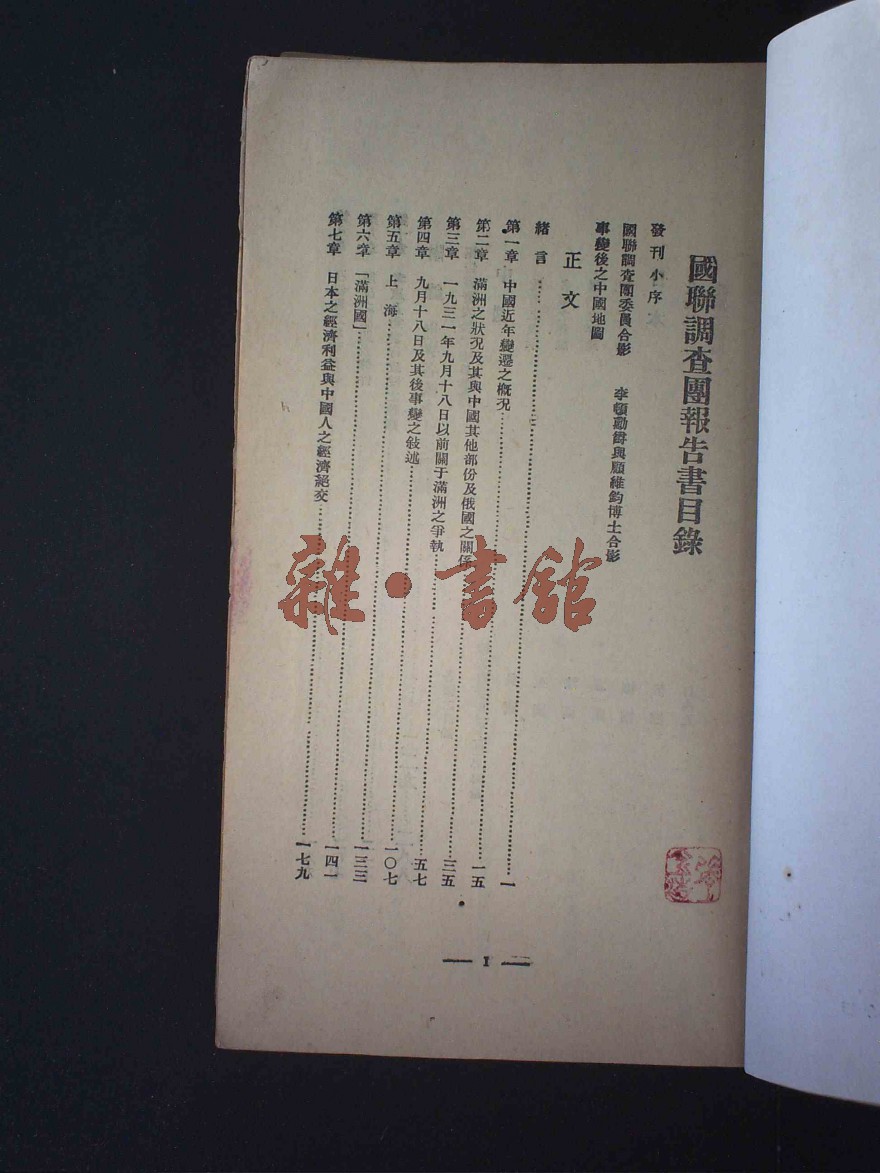 國聯調查團報告書目錄
發刊小序
國聯調查團委員合影　李頓勳爵與顧維鈞博士合影
事變後之中國地圖
正文
緒言……一
第一章　中國近年變遷之概況……一五
第二章　滿洲之狀況及其與中國其他部份及俄國之關係……三五
第三章　一九三一年九月十八日以前關于滿洲之爭執……五七
第四章　九月十八日及其後事變之敍述……一〇七
第五章　上海……一三三
第六章　「滿洲國」……一四一
第七章　日本之經濟利益與中國人之經濟絕交……一七九
— 1 —
雜·書館